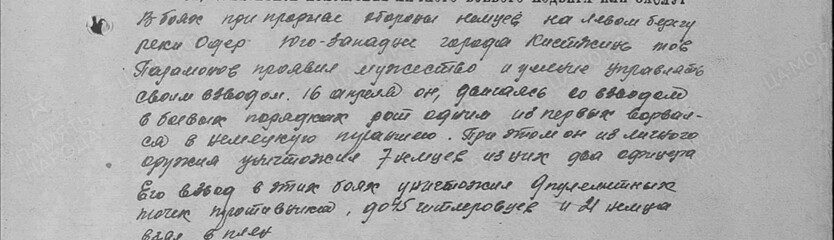 В боях при прорыве обороны немцев на левом берегу
реки Одер Юго-западнее города Кистжинь тов
Парамонов проявил мужество и умение управлять
своим взводом. 16 апреля он, двигаясь со взводом
в боевых порядках рот одним из первых ворвал-
ся в немецкую траншею. При этом он из личного
оружия уничтожил 7 немцев из них два офицера
Его взвод в этих боях уничтожил 9 пулеметных
точек противника, до 75 гитлеровцев и 21 немца
взял в плен